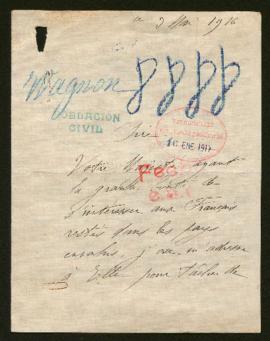 1916
Wagnon 8888
POBLACIÓN
CIVIL
Sire
16 ENE 1917
Votre Majesté ayant
la grande bonté de
s'intéresser aux Français
restés dans les pays
envahis, j'ose m'adresser
à Elle pour tâcher de